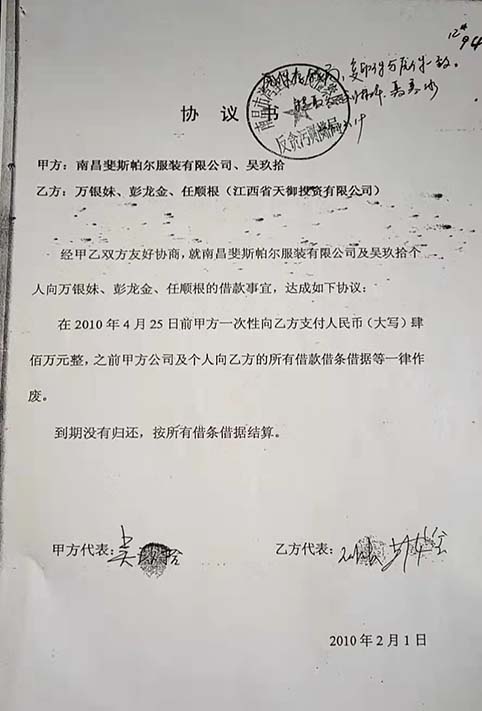 12#
94
复印件与原件一致。
南昌市
反贪污贿赂局
协议书
甲方：南昌斐斯帕尔服装有限公司、吴玖拾
乙方：万银妹、彭龙金、任顺根（江西省天御投资有限公司）
经甲乙双方友好协商，就南昌斐斯帕尔服装有限公司及吴玖拾个
人向万银妹、彭龙金、任顺根的借款事宜，达成如下协议：
在 2010 年 4 月 25 日前甲方一次性向乙方支付人民币（大写）肆
佰万元整，之前甲方公司及个人向乙方的所有借款借条借据等一律作
废。
到期没有归还，按所有借条借据结算。
甲方代表：吴玖拾
乙方代表：
2010 年 2 月 1 日